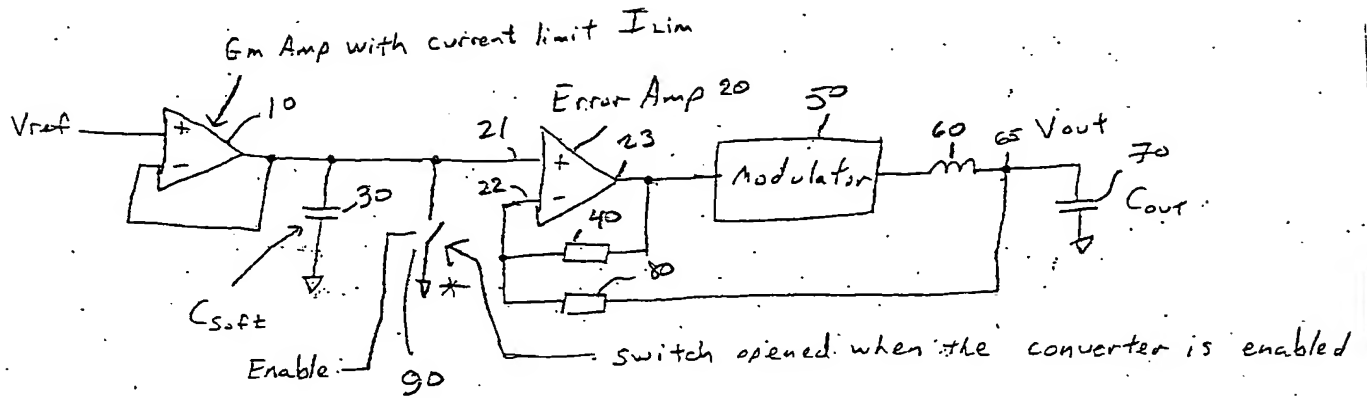 Gm Amp with current limit ILim
10
Vref
+
-
Error Amp 20
21
22
23
+
-
50
Modulator
60
65
Vout
70
Cout
30
40
80
Csoft
Enable
90
*
switch opened when the converter is enabled